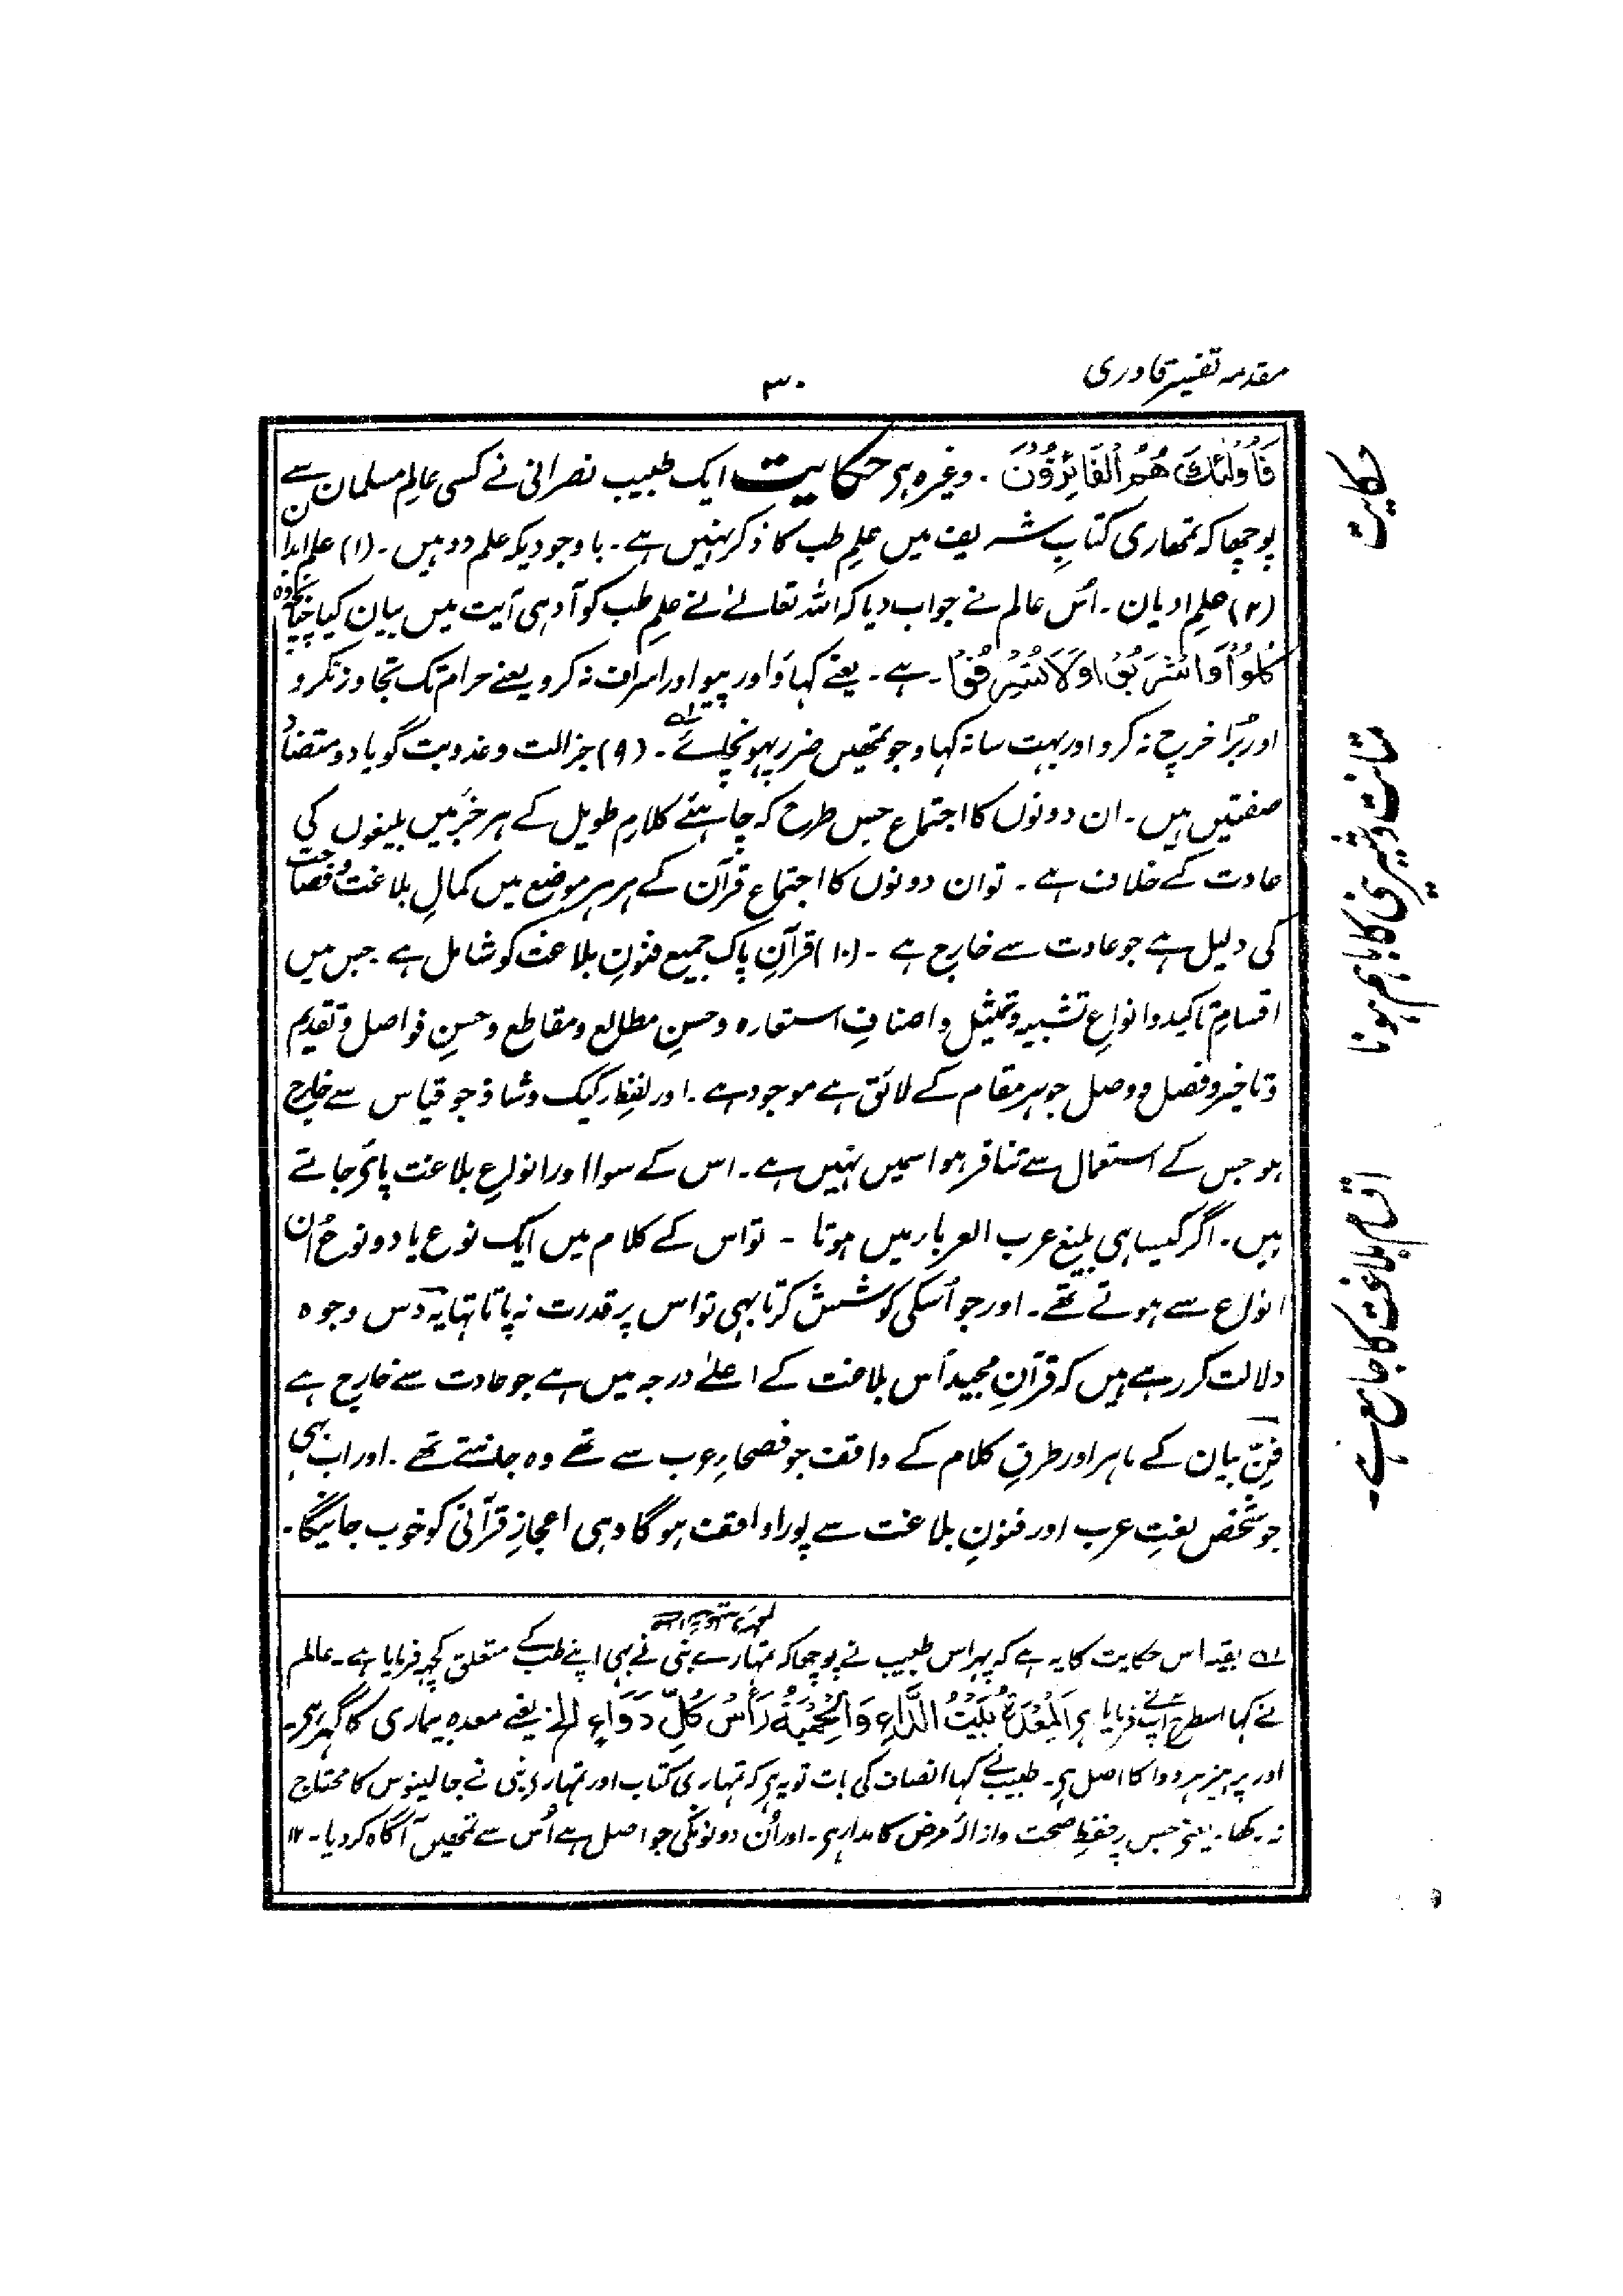 مقدمہ تفسیر قادری
۳۰
فَاُولٰئِكَ هُمُ الْفَائِزُوْنَ ۔ وغیرہ ہے حکایت ایک طبیب نصرانی نے کسی عالِم مسلمان سے
پوچھا کہ تمھاری کتابِ شریف میں علمِ طب کا ذکر نہیں ہے ۔ باوجودیکہ علم دو ہیں ۔ (۱) علمِ ابدان
(۲) علمِ ادیان ۔ اُس عالم نے جواب دیا کہ اللہ تعالےٰ نے علمِ طب کو آدہی آیت میں بیان کیا چنانچہ وہ
كُلُوْا وَاشْرَبُوْا وَلَا تُسْرِفُوْا ۔ ہے ۔ یعنے کہاؤ اور پیو اور اسراف نہ کرو یعنے حرام تک تجاوز نکرو
اور بُرا خرچ نہ کرو اور بہت سا نہ کہاؤ جو تمھیں ضرر پہونچائے ۔ (۹) جزالت و عذوبت گویا دو متضاد
صفتیں ہیں ۔ ان دونوں کا اجتماع جس طرح کہ چاہئے کلامِ طویل کے ہر جزر میں بلیغوں کی
عادت کے خلاف ہے ۔ تو ان دونوں کا اجتماع قرآن کے ہر ہر موضع میں کمالِ بلاغت و فصاحت
کی دلیل ہے جو عادت سے خارج ہے ۔ (۱۰) قرآنِ پاک جمیع فنونِ بلاغت کو شامل ہے ۔ جس میں
اقسامِ تاکید و انواعِ تشبیہ و تمثیل و اصنافِ استعارہ و حسنِ مطالع و مقاطع و حسنِ فواصل و تقدیم
و تاخیر و فصل و وصل جو ہر مقام کے لائق ہے موجود ہے ۔ اور لفظِ رکیک و شاذ جو قیاس سے خارج
ہو جس کے استعمال سے تنافر ہو اسمیں نہیں ہے ۔ اس کے سوا اور انواعِ بلاغت پائے جاتے
ہیں ۔ اگر کیسا ہی بلیغ عرب العربار میں ہوتا ۔ تو اس کے کلام میں ایک نوع یا دو نوع اُن
انواع سے ہوتے تھے ۔ اور جو اُسکی کوشش کرتا بہی تو اس پر قدرت نہ پاتا تہا یہ دس وجوہ
دلالت کر رہے ہیں کہ قرآنِ مجید اُس بلاغت کے اعلےٰ درجہ میں ہے جو عادت سے خارج ہے
فنِّ بیان کے ماہر اور طرقِ کلام کے واقف جو فصحارِ عرب سے تھے وہ جانتے تھے ۔ اور اب بہی
جو شخص لغتِ عرب اور فنونِ بلاغت سے پورا واقف ہوگا وہی اعجازِ قرآنی کو خوب جانیگا ۔
بقیہ اس حکایت کا یہ ہے کہ پہر اس طبیب نے پوچھا کہ تمہارے نبی نے بہی اپنے طب کے متعلق کچہہ فرمایا ہے ۔ عالم
نے کہا اسطرح آپ نے فرمایا ہے اَلْمِعْدَةُ بَيْتُ الدَّاءِ وَالْحِمْيَةُ رَأْسُ كُلِّ دَوَاءٍ الخ یعنے معدہ بیماری کا گہر ہے ۔
اور پرہیز ہر دوا کا اصل ہے ۔ طبیب نے کہا انصاف کی بات تو یہ ہے کہ تمہاری کتاب اور تمہارے نبی نے جالینوس کا محتاج
نہ رکھا ۔ یعنے جس پر حفظِ صحت و ازالۂ مرض کا مدار ہے ۔ اور اُن دونونکی جو اصل ہے اُس سے تمھیں آگاہ کر دیا ۔ ۱۲
حکایت
متانت و شیرینی کا باہم ہونا
اقسامِ بلاغت کا جامع ہے ۔